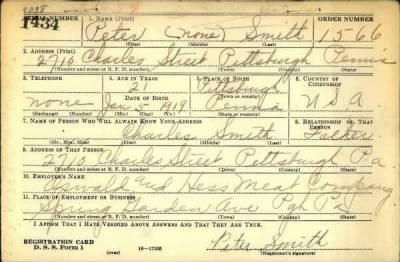 4038
SERIAL NUMBER 1. NAME (Print) ORDER NUMBER
1434 Peter (none) Smith 1566
(First) (Middle) (Last)
2. ADDRESS (Print)
2710 Charles Street Pittsburgh Penna
(Number and street or R. F. D. number) (Town) (County) (State)
3. TELEPHONE 4. AGE IN YEARS 5. PLACE OF BIRTH 6. COUNTRY OF CITIZENSHIP
21 Pittsburgh
DATE OF BIRTH
none Jan 1919 Penna U S A
(Exchange) (Number) (Mo.) (Day) (Yr.) (State or country)
7. NAME OF PERSON WHO WILL ALWAYS KNOW YOUR ADDRESS 8. RELATIONSHIP OF THAT PERSON
Charles Smith Father
(Mr., Mrs., Miss) (First) (Middle) (Last)
9. ADDRESS OF THAT PERSON
2710 Charles Street Pittsburgh Pa
(Number and street or R. F. D. number) (Town) (County) (State)
10. EMPLOYER'S NAME
Oswald and Hess Meat Company
11. PLACE OF EMPLOYMENT OR BUSINESS
Spring Garden Ave Pgh Pa
(Number and street or R. F. D. number) (Town) (County) (State)
I AFFIRM THAT I HAVE VERIFIED ABOVE ANSWERS AND THAT THEY ARE TRUE.
REGISTRATION CARD
D. S. S. Form 1 (over) 16-17105 Peter Smith
(Registrant's signature)